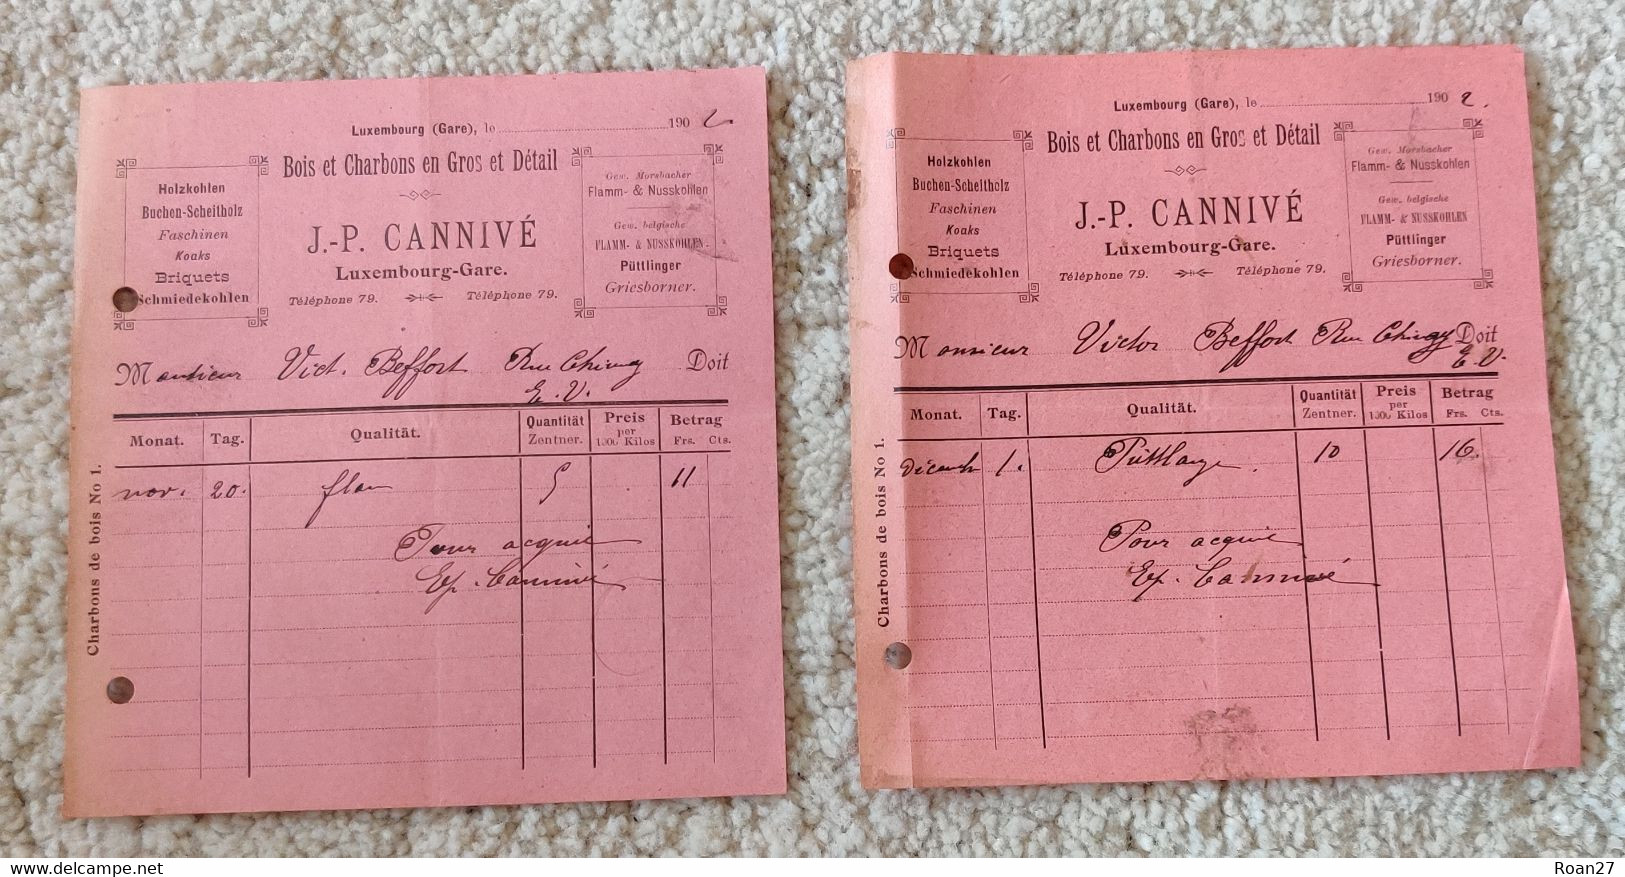 Luxembourg (Gare), le 190 2.
Bois et Charbons en Gros et Détail
Holzkohlen
Buchen-Scheitholz
Faschinen
Koaks
Briquets
Schmiedekohlen
J.-P. CANNIVÉ
Luxembourg-Gare.
Téléphone 79. Téléphone 79.
Gew. Morsbacher
Flamm- & Nusskohlen
Gew. belgische
FLAMM- & NUSSKOHLEN.
Püttlinger
Griesborner.
Monsieur Vict. Beffort Rue Chimay Doit
E. V.
Monat. Tag. Qualität. Quantität Zentner. Preis per 1000 Kilos Betrag Frs. Cts.
nov. 20. flam 5 11
Pour acquit
Ep. Cannivé
Charbons de bois No 1.
Luxembourg (Gare), le 190 2.
Bois et Charbons en Gros et Détail
Holzkohlen
Buchen-Scheitholz
Faschinen
Koaks
Briquets
Schmiedekohlen
J.-P. CANNIVÉ
Luxembourg-Gare.
Téléphone 79. Téléphone 79.
Gew. Morsbacher
Flamm- & Nusskohlen
Gew. belgische
FLAMM- & NUSSKOHLEN
Püttlinger
Griesborner.
Monsieur Victor Beffort Rue Chimay Doit
E. V.
Monat. Tag. Qualität. Quantität Zentner. Preis per 1000 Kilos Betrag Frs. Cts.
1. Püttlange 10 16.
Pour acquit
Ep. Cannivé
Charbons de bois No 1.
delcampe.net
Roan27